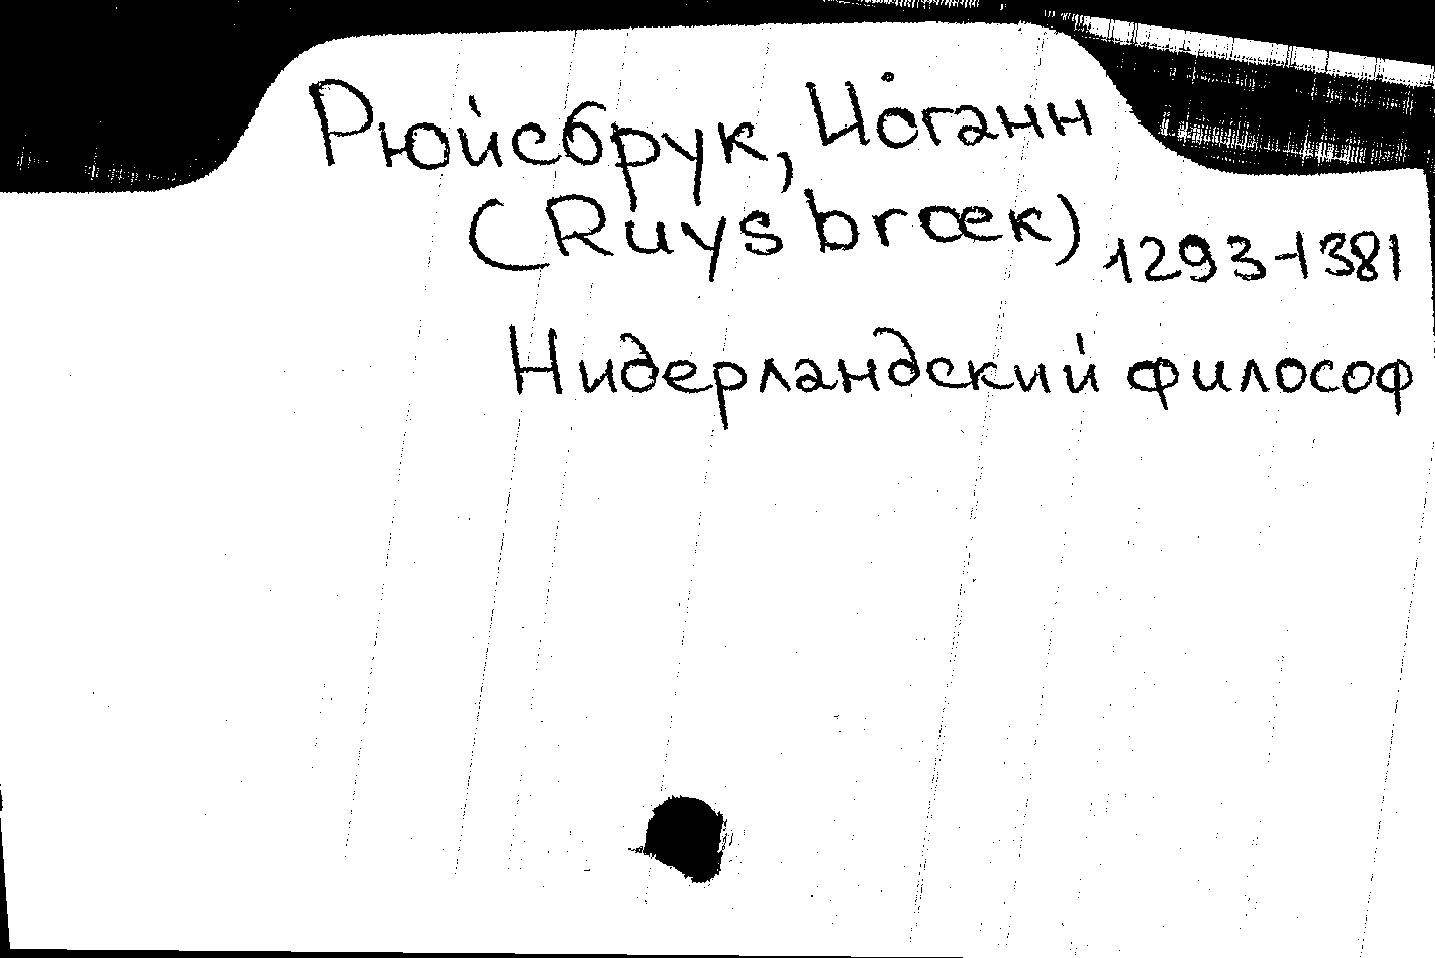 Рюйсбрук, Иоганн
(Ruysbroek) 1293-1381
Нидерландский философ